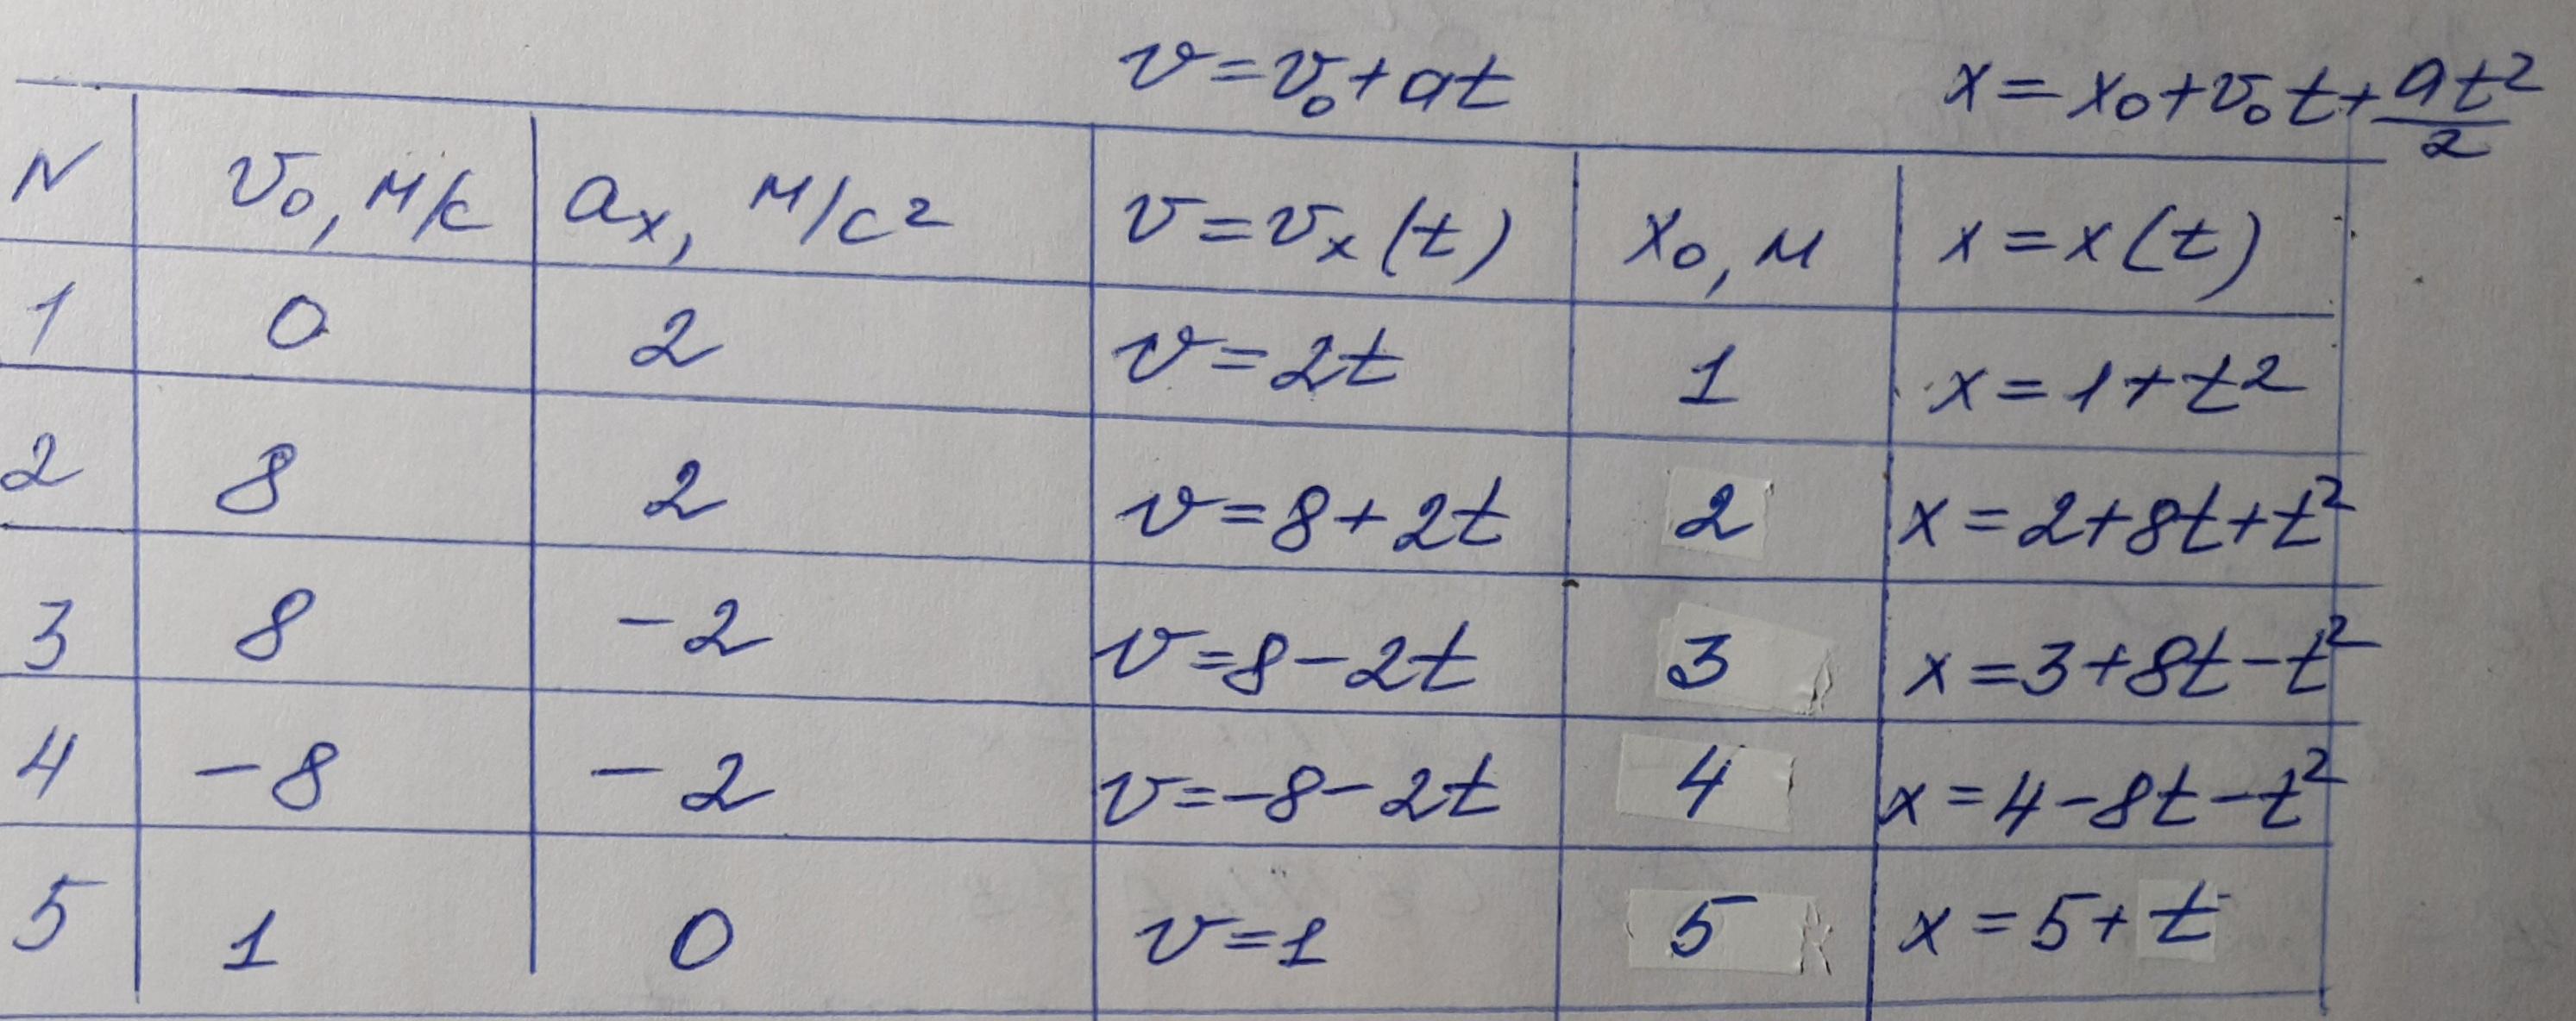 v=v₀+at x=x₀+v₀t+at²/2
N v₀, м/с aₓ, м/с² v=vₓ(t) x₀, м x=x(t)
1 0 2 v=2t 1 x=1+t²
2 8 2 v=8+2t 2 x=2+8t+t²
3 8 -2 v=8-2t 3 x=3+8t-t²
4 -8 -2 v=-8-2t 4 x=4-8t-t²
5 1 0 v=1 5 x=5+t